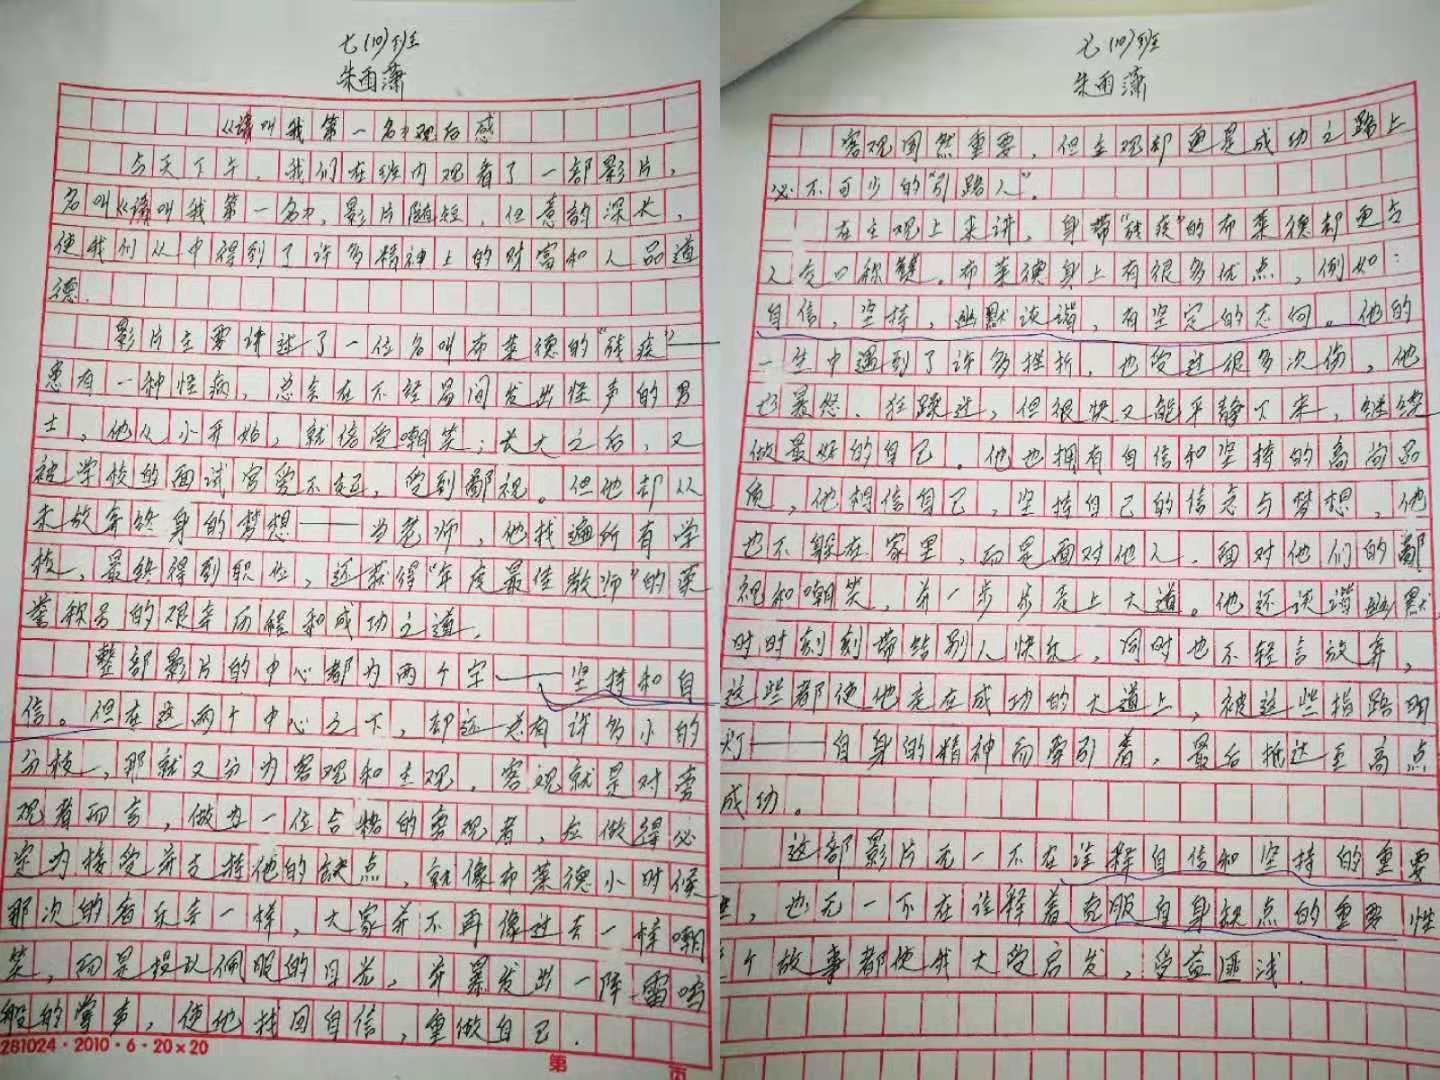 七(10)班
朱雨潇
《请叫我第一名》观后感
今天下午，我们在班内观看了一部影片，
名叫《请叫我第一名》，影片随短，但意韵深长，
使我们从中得到了许多精神上的财富和人品道
德。
影片主要讲述了一位名叫布莱德的“残疾”——
患有一种怪病，总会在不经易间发出怪声的男
士，他从小开始，就倍受嘲笑；长大之后，又
被学校的面试官爱不起，受到鄙视。但他却从
未放弃终身的梦想——当老师，他找遍所有学
校，最终得到职位，还获得“年度最佳教师”的荣
誉称号的艰辛历程和成功之道。
整部影片的中心都为两个字——坚持和自
信。但在这两个中心之下，却还有许多小的
分枝，那就又分为客观和主观。客观就是对旁
观者而言，做为一位合格的旁观者，应做得必
定为接受并支持他的缺点，就像布莱德小时候
那次的音乐会一样，大家并不再像过去一样嘲
笑，而是投以佩服的目光，并暴发出一阵雷鸣
般的掌声，使他找回自信，重做自己。
281024·2010·6·20×20
第 页
七(10)班
朱雨潇
客观固然重要，但主观却更是成功之路上
必不可少的“引路人”。
在主观上来讲，身带“残疾”的布莱德却更令
人交口称赞。布莱德身上有很多优点，例如：
自信，坚持，幽默诙谐，有坚定的志向。他的
一生中遇到了许多挫折，也受过很多次伤，他
也暴怒、狂躁过，但很快又能平静下来，继续
做最好的自己。他也拥有自信和坚持的高尚品
质，他相信自己，坚持自己的信念与梦想，他
也不躲在家里，而是面对他人，面对他们的鄙
视和嘲笑，并一步步走上大道。他还诙谐幽默
时时刻刻带给别人快乐，同时也不轻言放弃，
这些都使他走在成功的大道上，被这些指路明
灯——自身的精神而牵引着，最后抵达至高点
成功。
这部影片无一不在诠释自信和坚持的重要
，也无一不在诠释着克服自身缺点的重要性
个故事都使我大受启发，受益匪浅。